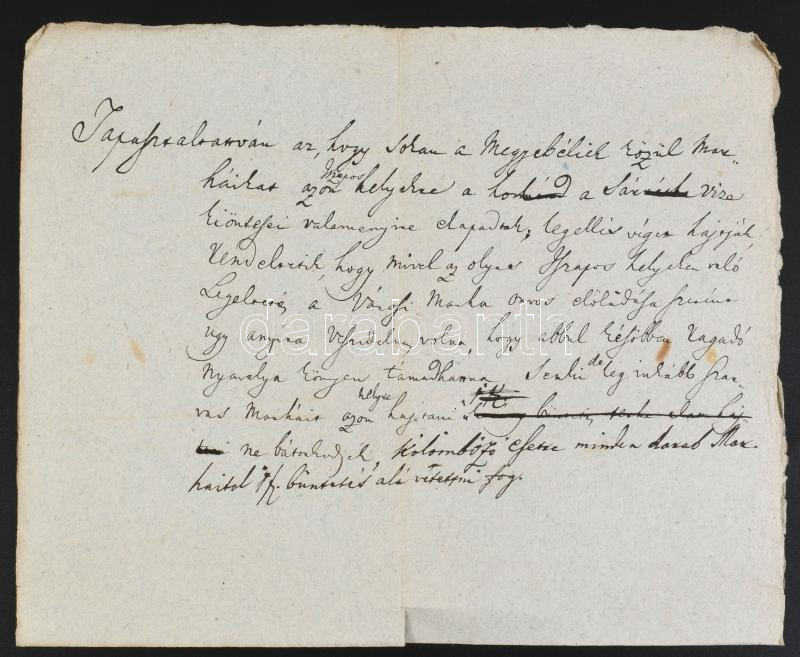 Tapasztaltatván az, hogy sokan a Megyebéliek közül Mar„
háikat azon Iszapos helyekre a a Sár vize
kiöntései valamenyire elapadtak; legellés végett hajtják,
Rendeltetik, hogy mivel az olyas Iszapos helyeken való
Legeltetés a Városi Marha orvos előladása szerint
ugy anyira veszedelmes volna, hogy abbul később ragadó
nyavalya könyen támadhatna Senki de leg inkább szar„
vas Marháit azon helyre hajtani
ne bátorkodjék, külömböző esetre minden darab Mar„
haitol f. büntetés alá vétettni fog.
darabanth